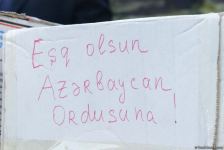 Eşq olsun
Azərbaycan
Ordusuna !